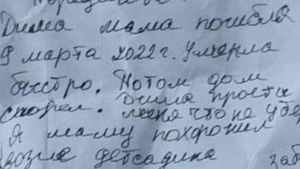 Дима мама погибла
9 марта 2022г. Умерла
быстро. Потом дом
сгорел. Дима прости
меня что не убе
Я маму похоронил
возле детсадика
заб